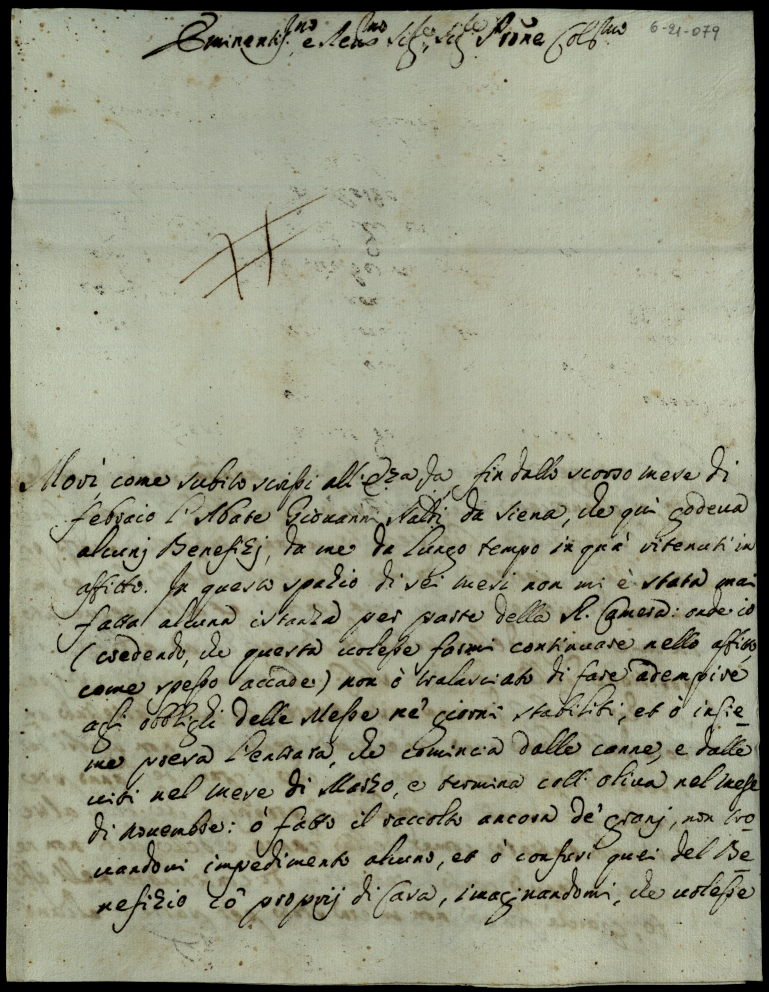 Eminentis.mo e Rev.mo Sig.re, Sig.re P.rone Col.mo
6-21-079
Morì, come subito scrissi all'E.za Va, fin dallo scorso mese di
febraio l'Abate Giovanni Naldi da Siena, che qui godeva
alcunj Benefizj, da me da lungo tempo in quà ritenuti in
affitto. In questo spazio di sei mesi non mi è stata mai
fatta alcuna istanza per parte della R. Camera: onde io
(credendo, che questa volesse farmi continuare nello affitto,
come spesso accade) non ò tralasciato di fare adempire
agli obblighi delle Messe ne' giorni stabiliti, et ò insie-
me presa l'entrata, che comincia dalle canne, e dalle
viti nel mese di Marzo, e termina coll'oliva nel mese
di novembre: ò fatto il raccolto ancora de' granj, non tro-
vandovi impedimento alcuno, et ò confusi quei del Be-
nefizio cò proprij di Casa, imaginandomi, che volesse